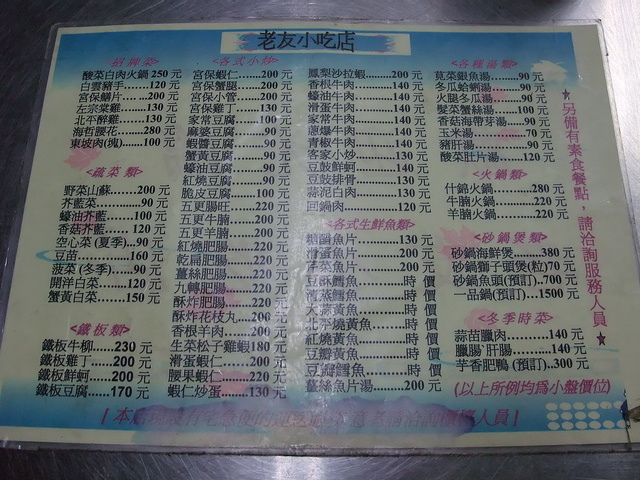 老友小吃店
<招牌菜>
酸菜白肉火鍋250元
白雲豬手........120元
宮保鱔片........200元
左宗棠雞........130元
北平醉雞........130元
海哲腰花........280元
東坡肉(塊)......100元
<蔬菜類>
野菜山蘇........200元
芥藍菜..........90元
蠔油芥藍........100元
香菇芥藍........120元
空心菜(夏季)...90元
豆苗............160元
菠菜(冬季)......90元
開洋白菜........120元
蟹黃白菜........150元
<鐵板類>
鐵板牛柳........230元
鐵板雞丁........200元
鐵板鮮蚵........200元
鐵板豆腐........170元
<各式小炒>
宮保蝦仁........200元
宮保蟹腿........200元
宮保小管........200元
宮保雞丁........130元
家常豆腐........100元
麻婆豆腐........90元
蝦醬豆腐........90元
蟹黃豆腐........90元
蠔油豆腐........90元
紅燒豆腐........90元
脆皮豆腐........100元
五更腸旺........220元
五更牛腩........200元
五更羊腩........200元
紅燒肥腸........220元
乾扁肥腸........220元
薑絲肥腸........220元
九轉肥腸........220元
酥炸肥腸........220元
酥炸花枝丸......200元
香根羊肉........200元
生菜松子雞蝦180元
滑蛋蝦仁........200元
腰果蝦仁........220元
蝦仁炒蛋........130元
鳳梨沙拉蝦......200元
香根牛肉........140元
蠔油牛肉........140元
滑蛋牛肉........140元
家常牛肉........140元
蔥爆牛肉........140元
青椒牛肉........140元
客家小炒........130元
豆鼓鮮蚵........140元
豆鼓排骨........130元
蒜泥白肉........130元
回鍋肉..........120元
<各式生鮮魚類>
糖醋魚片........130元
滑蛋魚片........200元
芹菜魚片........200元
豆酥鱈魚........時價
清蒸鱈魚........時價
大蒜黃魚........時價
北平燒黃魚......時價
紅燒黃魚........時價
豆瓣黃魚........時價
豆瓣鱈魚........時價
薑絲魚片湯......200元
<各種湯類>
莧菜銀魚湯......90元
冬瓜蛤蜊湯......90元
火腿冬瓜湯......90元
髮菜蟹絲湯......100元
香菇海帶芽湯....90元
玉米湯..........70元
豬肝湯..........90元
酸菜肚片湯......120元
<火鍋類>
什錦火鍋........280元
牛腩火鍋........220元
羊腩火鍋........220元
<砂鍋煲類>
砂鍋海鮮煲......380元
砂鍋獅子頭煲(粒)70元
砂鍋魚頭(預訂)..700元
一品鍋(預訂)...1500元
<冬季時菜>
蒜苗臘肉........140元
臘腸肝腸........140元
芋香肥鴨(預訂)..300元
(以上所例均爲小盤價位)
★另備有素食餐點,請洽詢服務人員★